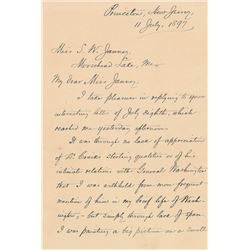 Princeton, New Jersey,
11 July, 1897
Miss S. W. Janney,
Moosehead Lake, Me.
My dear Miss Janney,
I take pleasure in replying to your
interesting letter of July eighth, which
reached me yesterday afternoon.
It was through no lack of appreciation
of Dr. Craik's sterling qualities or of his
intimate relations with General Washington
that I was withheld from more frequent
mention of him in my brief life of Wash-
ington, but simply through lack of space.
I was painting a big picture on a small